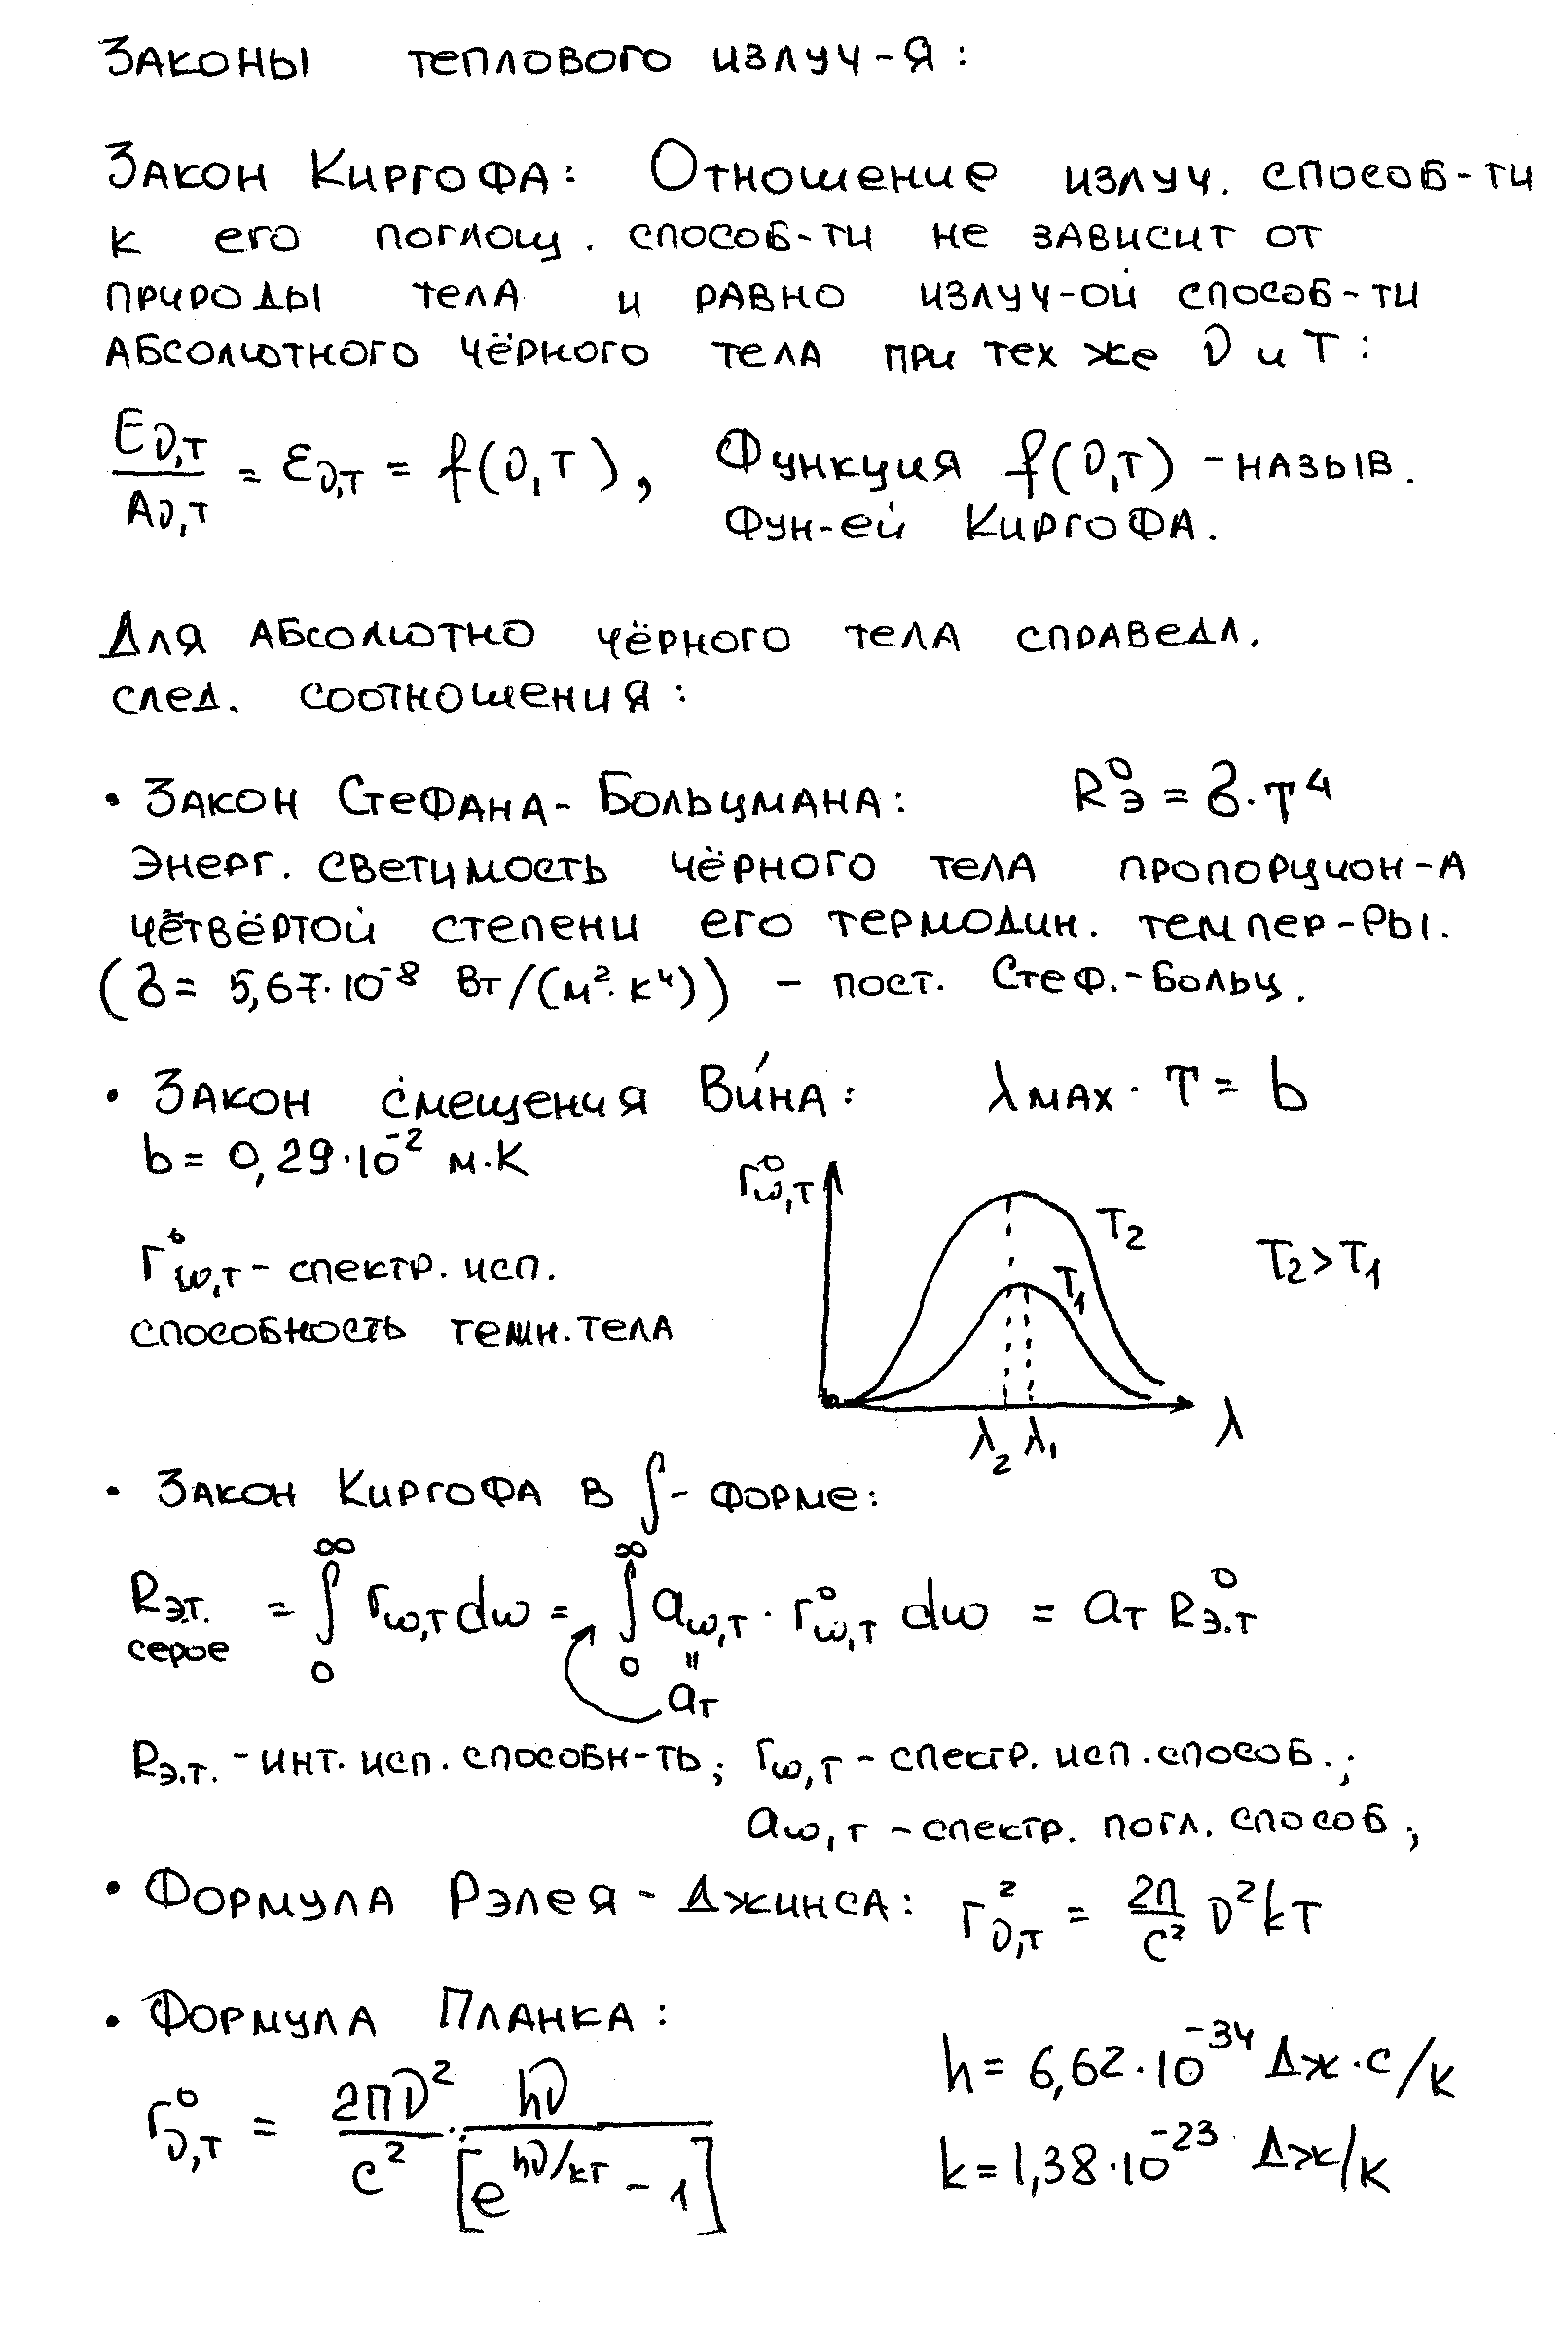 Законы теплового излуч-я:
Закон Киргофа: Отношение излуч. способ-ти
к его поглощ. способ-ти не зависит от
природы тела и равно излуч-ой способ-ти
абсолютного чёрного тела при тех же ν и T:
Eν,T / Aν,T = εν,T = f(ν,T), Функция f(ν,T) - назыв.
фун-ей Киргофа.
Для абсолютно чёрного тела справедл.
след. соотношения:
• Закон Стефана-Больцмана: R⁰э = σ·T⁴
Энерг. светимость чёрного тела пропорцион-а
чётвёртой степени его термодин. темпер-ры.
(σ = 5,67·10⁻⁸ Вт/(м²·к⁴)) - пост. Стеф.-Больц.
• Закон смещения Ви́на: λмах · T = b
b = 0,29·10⁻² м·К
r⁰ω,T
T₂
T₂ > T₁
T₁
r⁰ω,T - спектр. исп.
способность темн. тела
λ
λ₂ λ₁
• Закон Киргофа в ∫- форме:
Rэ.т. серое = ∫₀^∞ rω,T dω = ∫₀^∞ aω,T · r⁰ω,T dω = aT R⁰э.т
"
aT
Rэ.т. - инт. исп. способн-ть; rω,T - спектр. исп. способ.;
aω,T - спектр. погл. способ;
• Формула Рэлея - Джинса: r²ν,T = 2π/c² ν²kT
• Формула Планка:
r⁰ν,T = 2πν²/c² · hν/[e^(hν/kT) - 1]
h = 6,62·10⁻³⁴ Дж·с/к
k = 1,38·10⁻²³ Дж/к